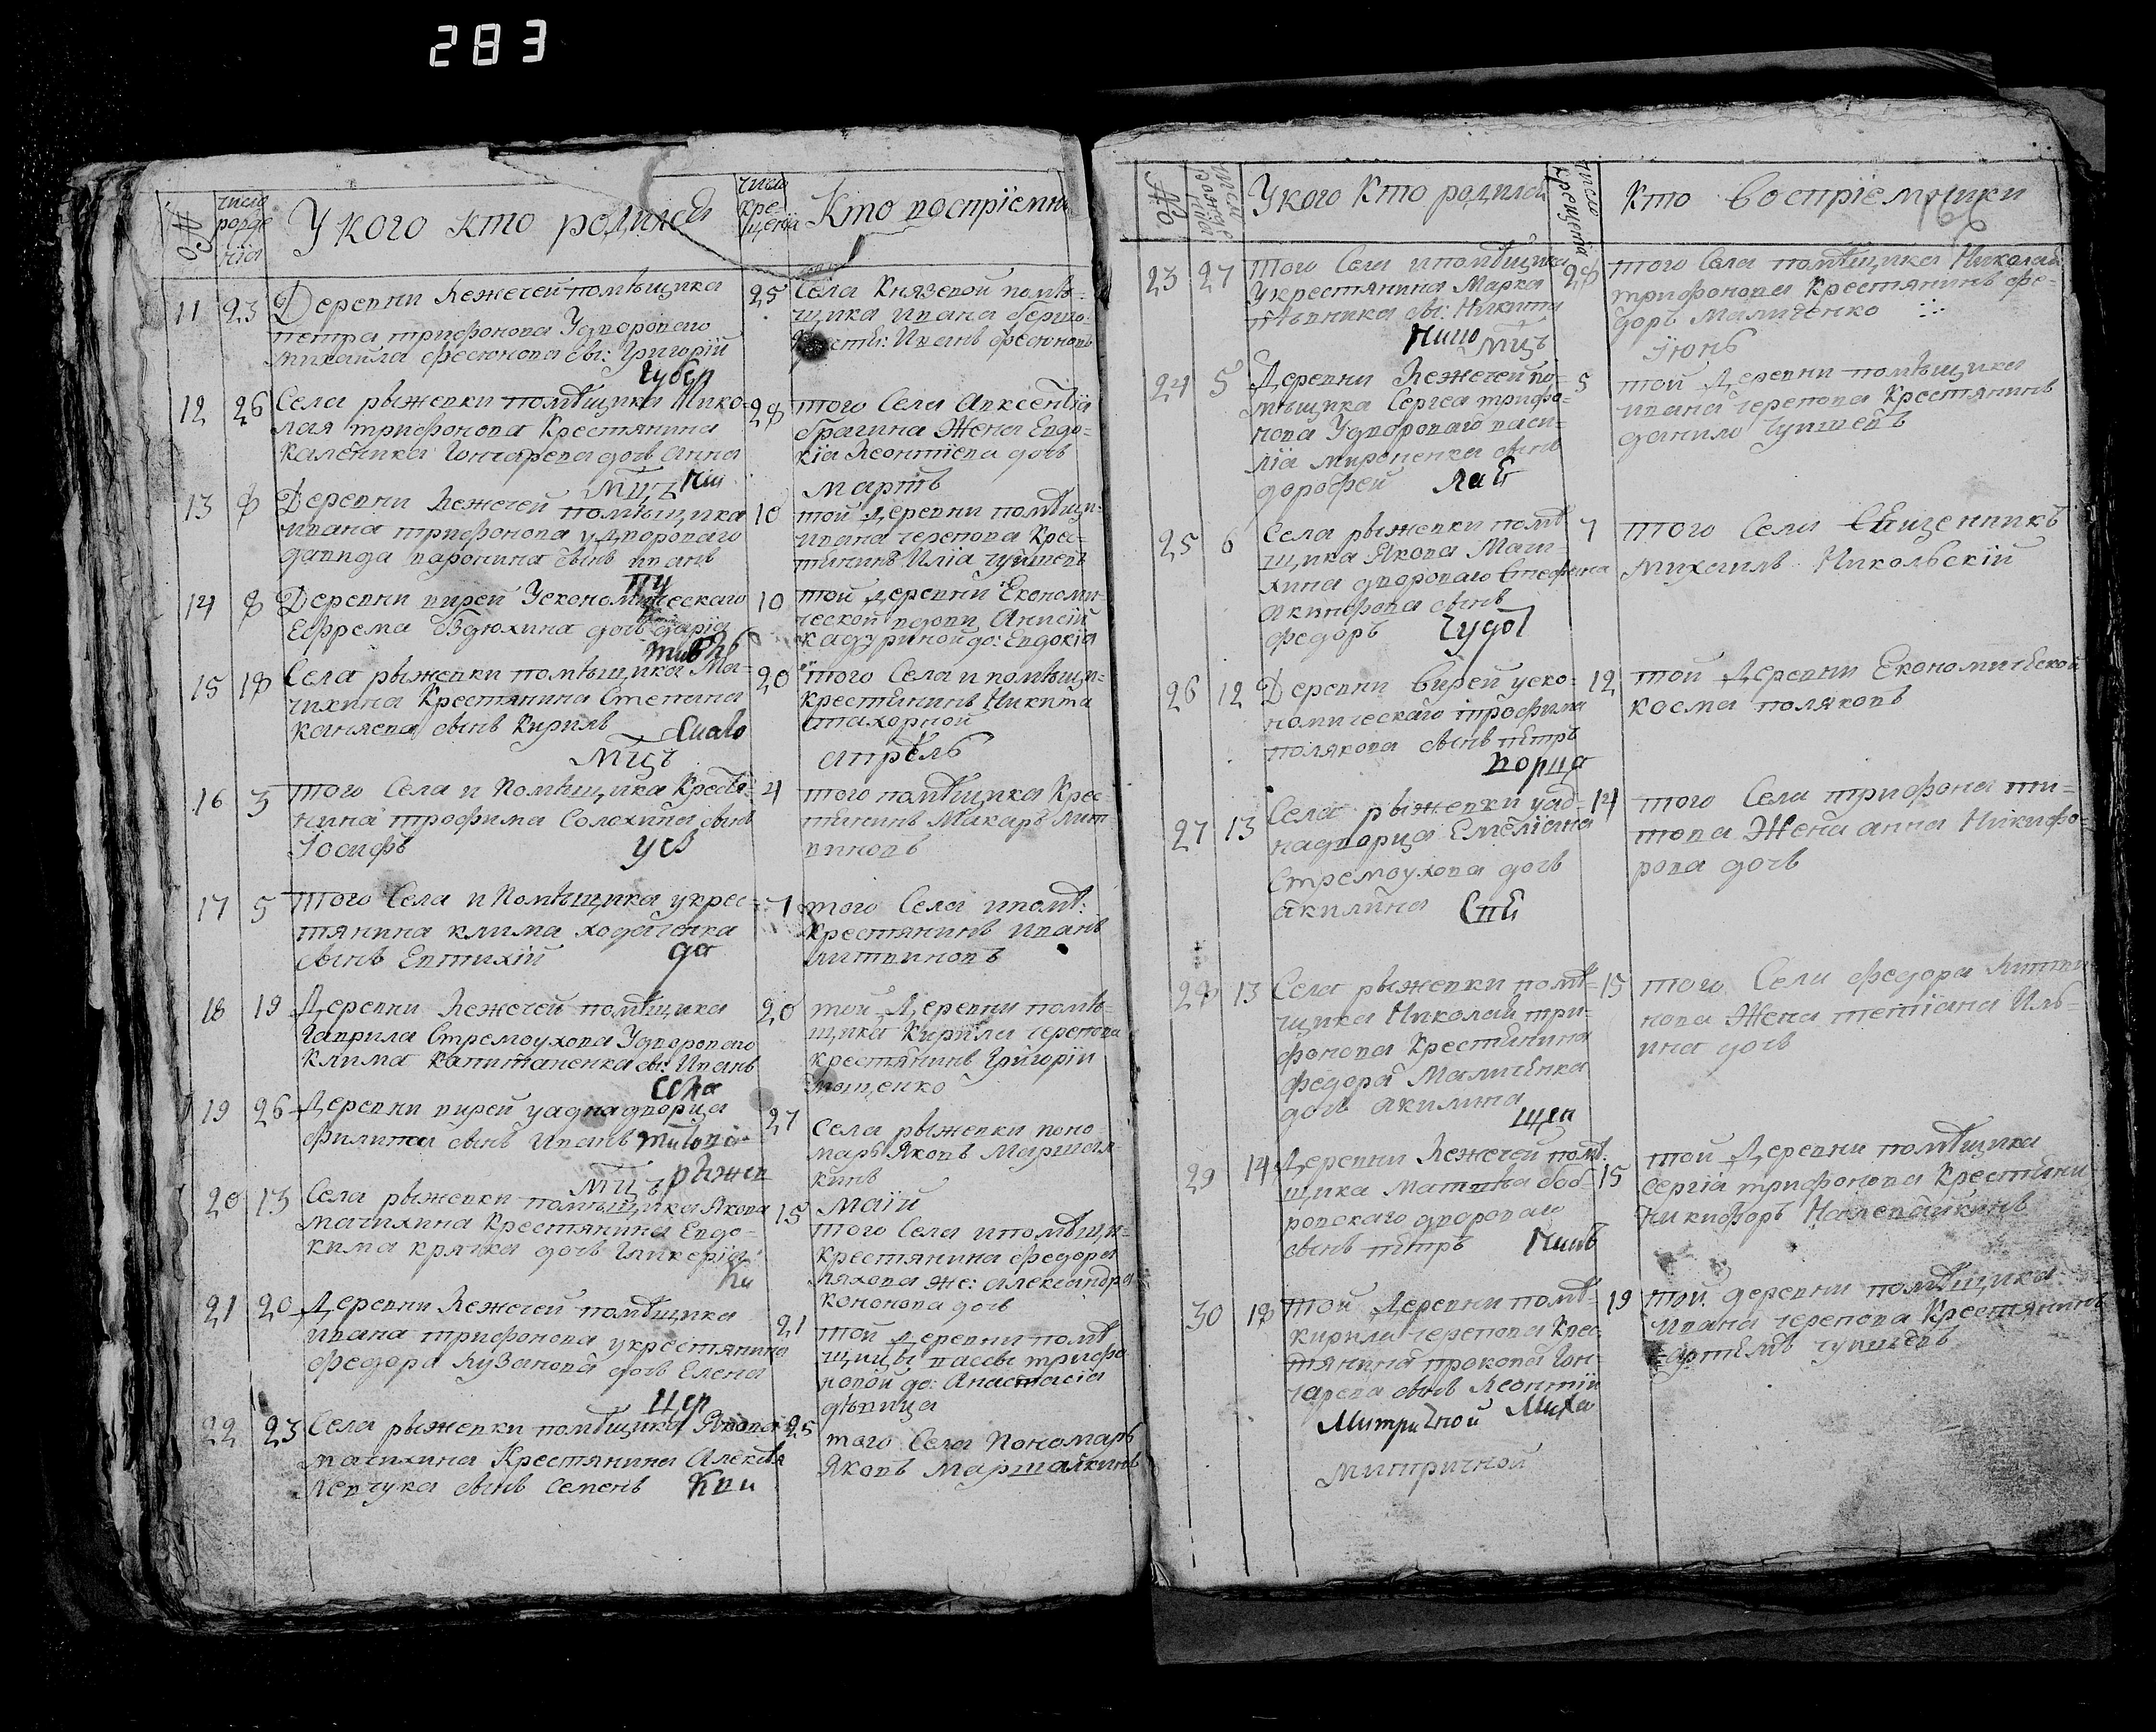 283
№
число рожде нїа
У кого кто родился
число кре- щенїи
Кто воспрїемни
11 23 Деревни Лежечей помѣщика
петра трифонова Удворового
михаила фесюнова сы: Григорїй
25 Села Князевой помѣ-
щика ивана
Иванъ фесюновъ
12 26 Села рыжевки помѣщика Нико-
лая трифонова Крестянина
Каленика Гончарева дочь анна
28 того Села Авксентїя
брагина Жена Евдо-
кїа Леонтїева дочь
Мцъ
мартъ
13 8 Деревни Лежечей помѣщика
ивана трифонова удворового
давида воронина сынъ иванъ
10 той Деревни помѣщи-
ивана черепова Крес-
тянинъ Илїа
14 8 Деревни вирей Уекономическаго
Ефрема Бздюхина дочь дарїа
10 той Деревни Економи-
ческой вдовы Анисїи
до: Евдокїа
15 18 Села рыжевки помѣщика Ма-
чихина Крестянина Степана
каняева сынъ Кирилъ
20 того Села и помѣщи-
крестянинъ Никита
стахорной
Мцъ
апрѣль
16 3 того Села и Помѣщика Кресте-
нина трофима Солохина сынъ
Іосифъ
4 того помѣщика Крес-
тянинъ Макаръ Лит
виновъ
17 5 того Села и Помѣщика укрес-
тянина клима ходаченка
сынъ Евтихїй
7 того Села ипомѣ:
Крестянинъ иванъ
литвиновъ
18 19 Деревни Лежечей помѣщика
Гаврила Стремоухова Удворового
клима капитаненка сы: Иванъ
20 той Деревни помѣ-
щика Кирила черепова
крестянинъ Григорїи
19 26 Деревни вирей уаднадворца
филипа сынъ Иванъ
27 Села рыжевки поно-
марь Яковъ Маршал-
кинъ
Мцъ
маїй
20 13 Села рыжевки помѣщика Якова
мачихина Крестянина Евдо-
кима дочь Гликерїа
15 того Села ипомѣщи-
крестянина федора
ляхова же: александра
кононова дочь
21 20 Деревни Лежечей помѣщика
ивана трифонова укрестянина
федора кузанова дочь Елена
21 той Деревни помѣ
щицы трифо
новой до: Анастасїа
дѣвица
22 23 Села рыжевки помѣщика Якова
мачихина Крестянина Алексѣя
левчука сынъ Семенъ
25 того Села Пономарь
Яковъ маршалкинъ
№
число рожде нїа
У кого кто родился
число крещенїи
кто воспрїемники
23 27 того Села ипомѣщика
укрестянина Марка
сы: Никита
28 того Села помѣщика Николая
трифонова Крестянинъ фе-
доръ Маличенко
Мцъ
Іюнь
24 5 Деревни Лежечей по-
мѣщика Сергеа трифо-
нова Удворового васи-
лїа мироненка сынъ
дорофей
5 той Деревни помѣщика
ивана черепова Крестянинъ
данило
25 6 Села рыжевки помѣ
щика Якова Мачи-
хина дворового Стефана
акинфова сынъ
федоръ
7 того Села Священникъ
михаилъ Никольскїй
26 12 Деревни Вирей уеко-
номическаго трофима
полякова сынъ петръ
12 той Деревни Економической
косма поляковъ
27 13 Села рыжевки уад-
надворца Емелїана
Стремоухова дочь
акилина
14 того Села трифона ти-
това Жена анна Никифо-
рова дочь
28 13 Села рыжевки помѣ-
щика Николай три-
фонова Крестянина
федора Маличенка
дочь акилина
15 того Села федора Литви
нова Жена тетїана Иль-
ина дочь
29 14 Деревни Лежечей помѣ:
щика Матвѣа боб-
ровскаго дворового
сынъ петръ
15 той Деревни помѣщика
Сергїа трифонова Крестянин
Никифоръ
30 18 той Деревни помѣ-
кирила черепова Крес
тянина прокопа Гон-
чарева сынъ Леонтїи
19 той деревни помѣщика
ивана черепова Крестянинъ
артемъ
Митричной
митричной